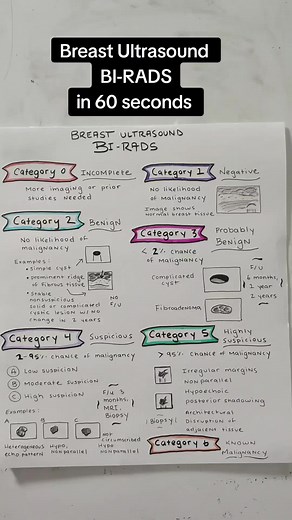 Breast Ultrasound
BI-RADS
in 60 seconds
BREAST ULTRASOUND
BI-RADS
Category 0 INCOMPLETE
More imaging or prior
studies needed
Category 1 Negative
No likelihood
of Malignancy
Image shows
normal breast tissue
Category 2 Benign
No likelihood of
malignancy
Examples:
• Simple cyst
• prominent ridge
of fibrous tissue
• Stable
nonsuspicious
solid or complicated
cystic lesion w/ no
change in 2 years
No
F/U
Category 3 Probably
Benign
< 2% chance
of Malignancy
Complicated
cyst
Fibroadenoma
F/U
6 months,
1 year
2 years
Category 4 Suspicious
2-95% chance of malignancy
A Low suspicion
B Moderate suspicion
C High suspicion
F/u 3
months,
MRI,
Biopsy
Examples:
A B C
Heterogeneous
echo pattern
Hypo,
nonparallel
not
circumscribed
Hypo
nonparallel
Category 5 Highly
Suspicious
> 95% chance of Malignancy
Irregular margins
Non parallel
Hypoechoic
posterior shadowing
Architectural
Disruption of
adjacent tissue
Biopsy!
Category 6 KNOWN
Malignancy